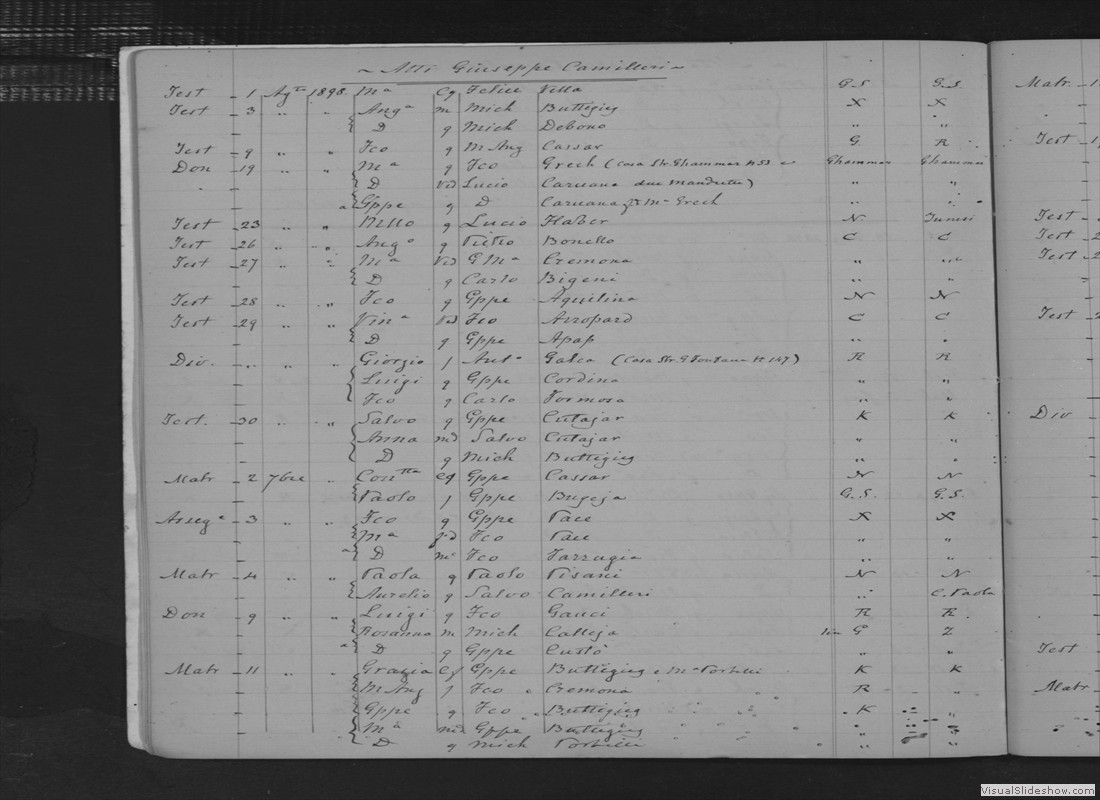 ~ Atti Giuseppe Camilleri ~
Test 1 Agto 1898 Ma Cg Felice Vella G.S G.S. Matr.
Test 3 " " Anga m Mich Buttigieg X X
D g Mich Debono " "
Test 9 " " Fco g M Ang Cassar G. R Test
Don 19 " " Ma g Fco Grech (Casa Str. Ghammar N 53 Ghammar Ghammar
D vid Lucio Caruana due Mandrette) " "
a Gppe g D Caruana Ma Grech " "
Test 23 " " Nello g Lucio Haber N Tunisi Test
Test 26 " " Ango g Pietro Bonello C C Test
Test 27 " " Ma Vid G Ma Cremona " " Test
D g Carlo Bigeni " "
Test 28 " " Fco g Gppe Aquilina N N
Test 29 " " Vina Vd Fco Avopard C C Test
D g Gppe Apap " "
Div. " " " Giorgio f Anto Galea (Casa Str. G Fontana N 147) R R
Luigi g Gppe Cordina " "
Fco g Carlo Formosa " "
Test. 30 " " Salvo g Gppe Cutajar K K Div
Anna md Salvo Cutajar " "
D g Mich Buttigieg " "
Matr 2 7bre " Contta Cg Gppe Cassar N N
Paolo f Gppe Bugeja G.S. G.S.
Assega 3 " " Fco g Gppe Pace X X
Ma Fco Pace " "
a D Fco Farrugia " "
Matr 4 " " Paola g Paolo Pisani N N
Aurelio g Salvo Camilleri " C. Paola
Don 9 " " Luigi g Fco Gauci R R
Rosanna m Mich Calleja G Z
a D g Gppe Custò " " Test
Matr 11 " " Grazia Cf Gppe Buttigieg e Ma Portelli K K
M Ang f Fco Cremona R " Matr
Gppe g Fco Buttigieg K "
Ma md Gppe Buttigieg " "
D g Mich Portelli " "
VisualSlideshow.com